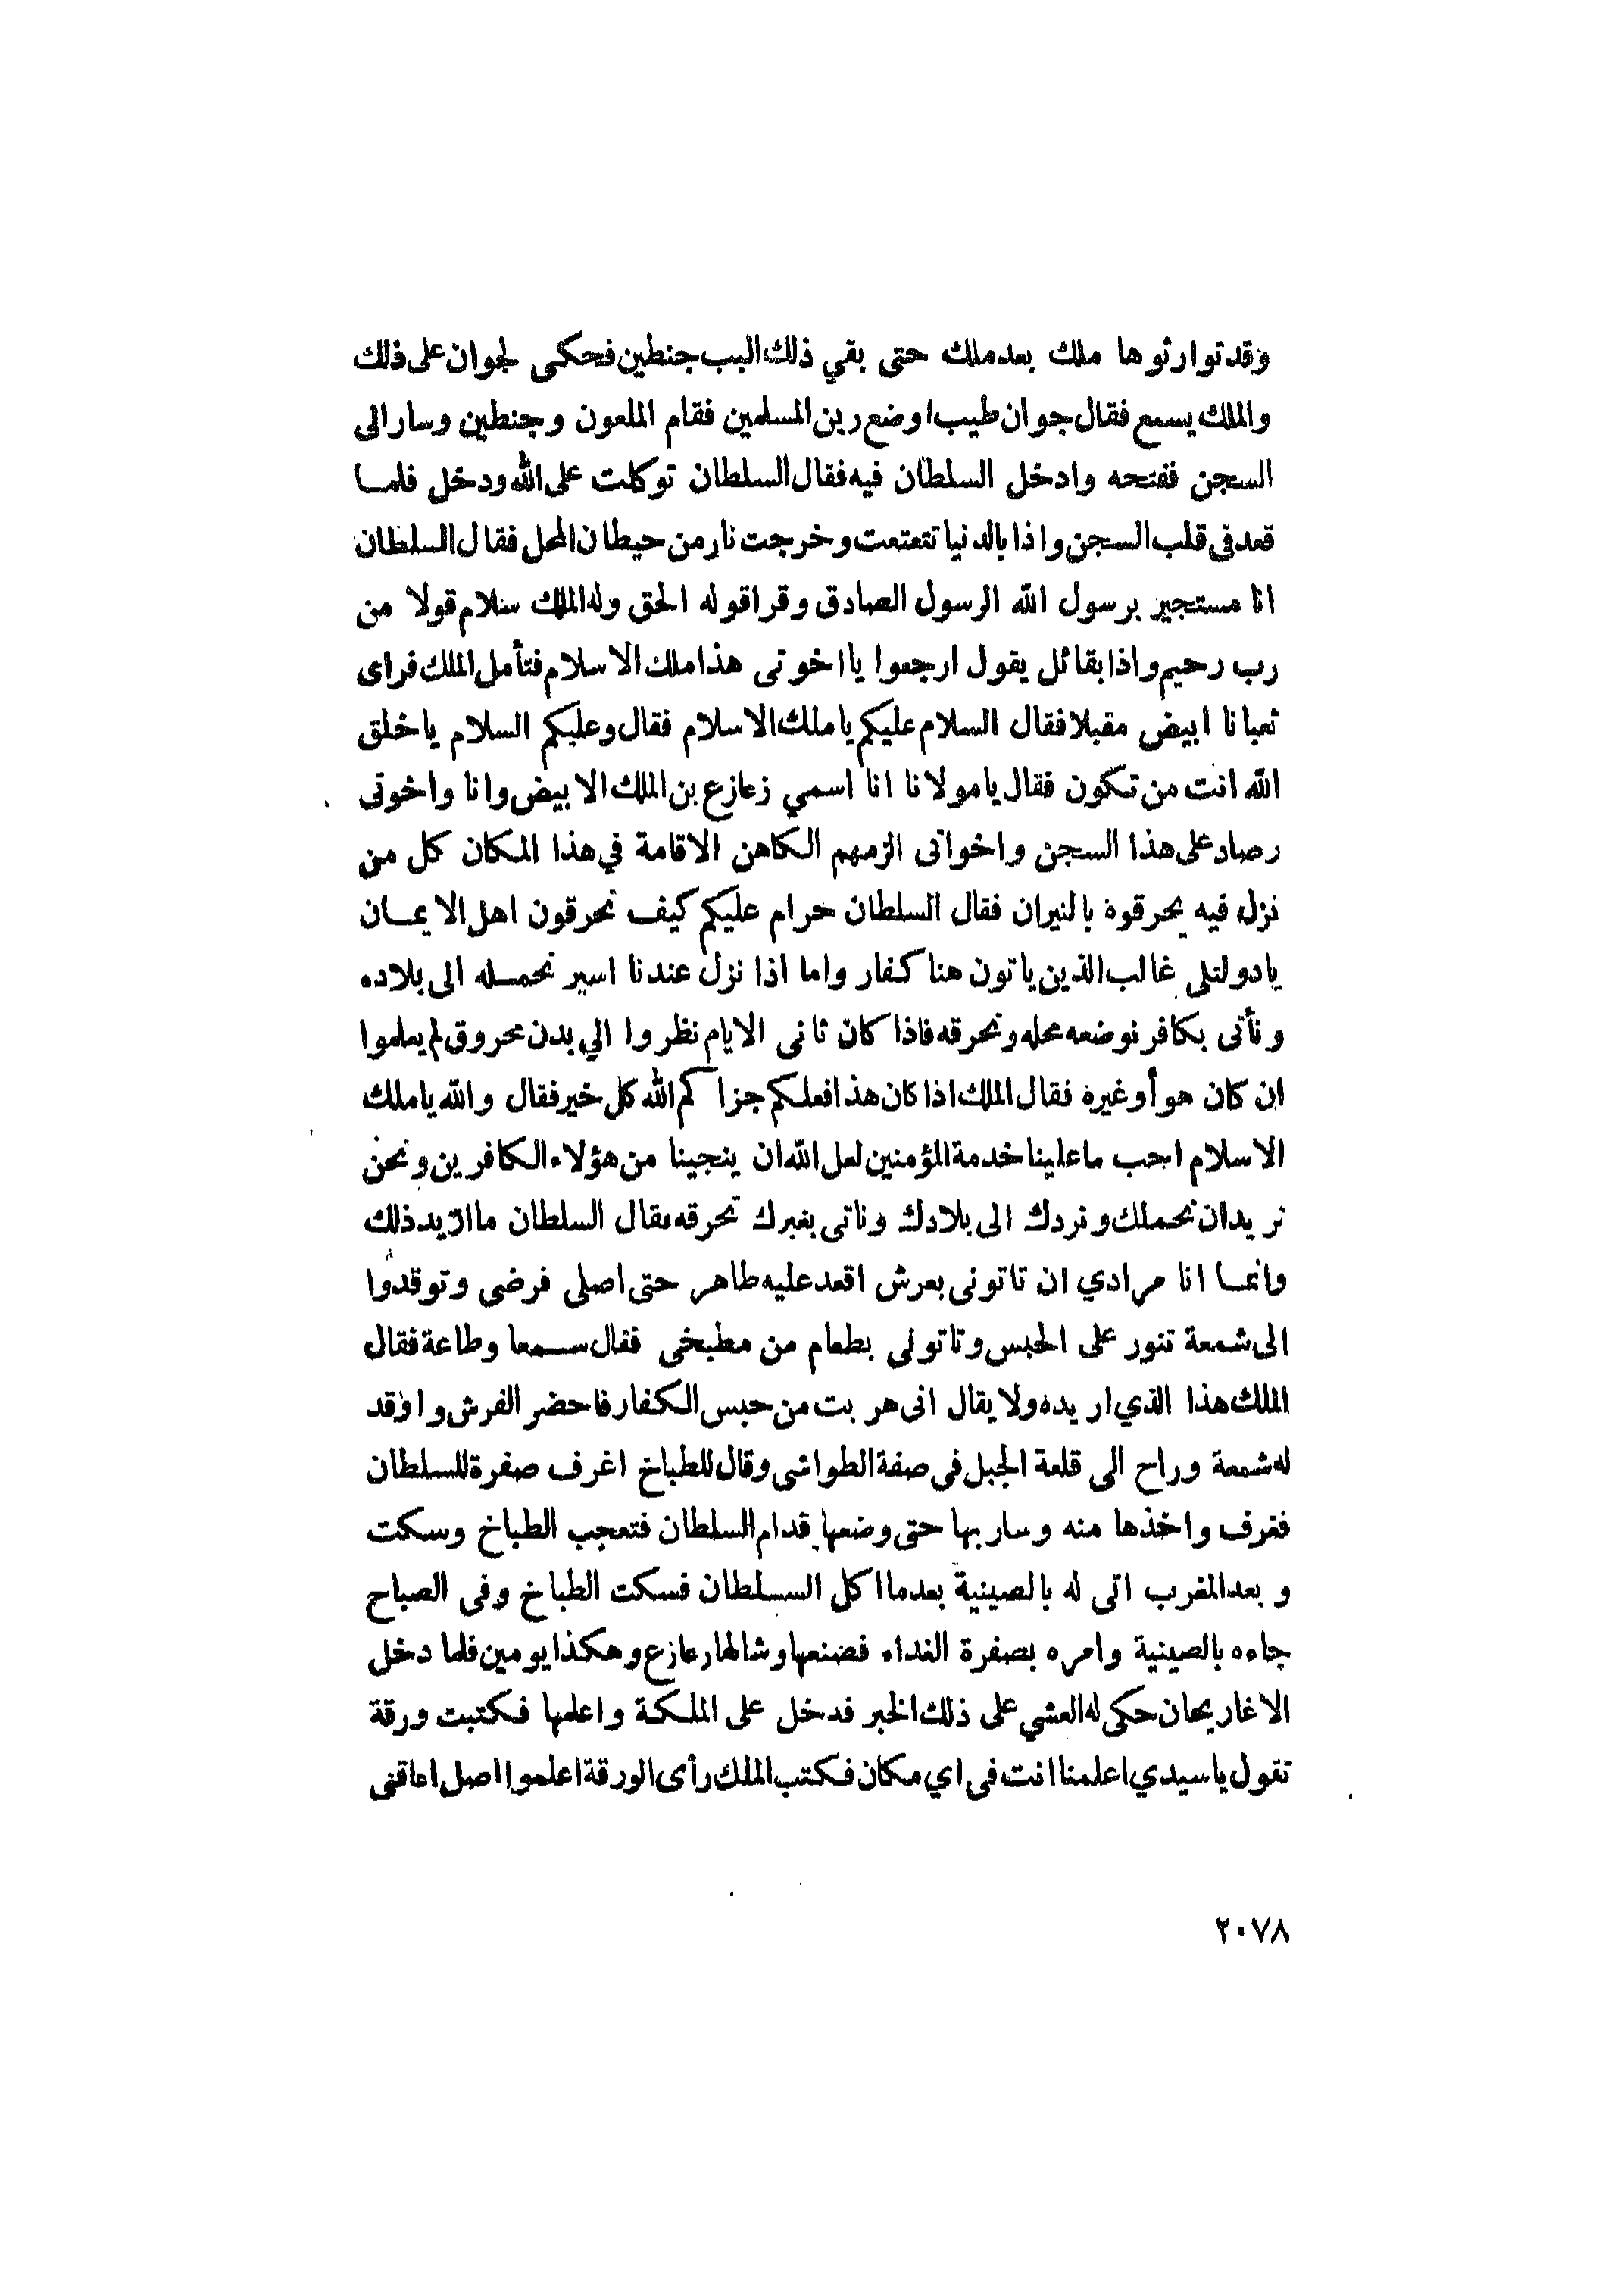 وقد توارثوها ملك بعد ملك حتى بقي ذلك البب جنطين فحكى لجوان على ذلك
والملك يسمع فقال جوان طيب اوضع رين المسلمين فقام الملعون وجنطين وسار الى
السجن ففتحه وادخل السلطان فيه فقال السلطان توكلت على الله ودخل فلما
قعد فى قلب السجن واذا بالدنيا تتعتعت وخرجت نار من حيطان المحل فقال السلطان
انا مستجير برسول الله الرسول الصادق وقرا قوله الحق وله الملك سلام قولا من
رب رحيم واذا بقائل يقول ارجعوا يا اخوتى هذا ملك الاسلام فتأمل الملك فراى
ثعبانا ابيض مقبلا فقال السلام عليكم يا ملك الاسلام فقال وعليكم السلام يا خلق
الله انت من تكون فقال يا مولانا انا اسمي زعازع بن الملك الابيض وانا واخوتى
رصاد على هذا السجن واخواتى الزمهم الكاهن الاقامة في هذا المكان كل من
نزل فيه يحرقوه بالنيران فقال السلطان حرام عليكم كيف تحرقون اهل الايمان
يا دولتلى غالب الذين ياتون هنا كفار واما اذا نزل عندنا اسير نحمله الى بلاده
ونأتى بكافر نوضعه محله ونحرقه فاذا كان ثانى الايام نظروا الي بدن محروق لم يعلموا
ان كان هو أو غيره فقال الملك اذا كان هذا فعلكم جزاكم الله كل خير فقال والله يا ملك
الاسلام احب ما علينا خدمة المؤمنين لعل الله ان ينجينا من هؤلاء الكافرين ونحن
نريد ان نحملك ونردك الى بلادك وناتى بغيرك نحرقه فقال السلطان ما اريد ذلك
وانما انا مرادي ان تاتونى بعرش اقعد عليه طاهر حتى اصلى فرضى وتوقدوا
الى شمعة تنور على الحبس وتاتونى بطعام من مطبخى فقال سمعا وطاعة فقال
الملك هذا الذي اريده ولا يقال انى هربت من حبس الكفار فاحضر الفرش واوقد
له شمعة وراح الى قلعة الجبل فى صفة الطواشى وقال للطباخ اغرف صفرة للسلطان
فغرف واخذها منه وسار بها حتى وضعها قدام السلطان فتعجب الطباخ وسكت
وبعد المغرب اتى له بالصينية بعدما اكل السلطان فسكت الطباخ وفى الصباح
جاءه بالصينية وامره بصفرة الغداء فصنعها وشالها رعازع وهكذا يومين فلما دخل
الاغا ريحان حكى له العشي على ذلك الخبر فدخل على الملكة واعلمها فكتبت ورقة
تقول يا سيدي اعلمنا انت فى اي مكان فكتب الملك رأى الورقة اعلموا اصل اعاقنى
٢٠٧٨